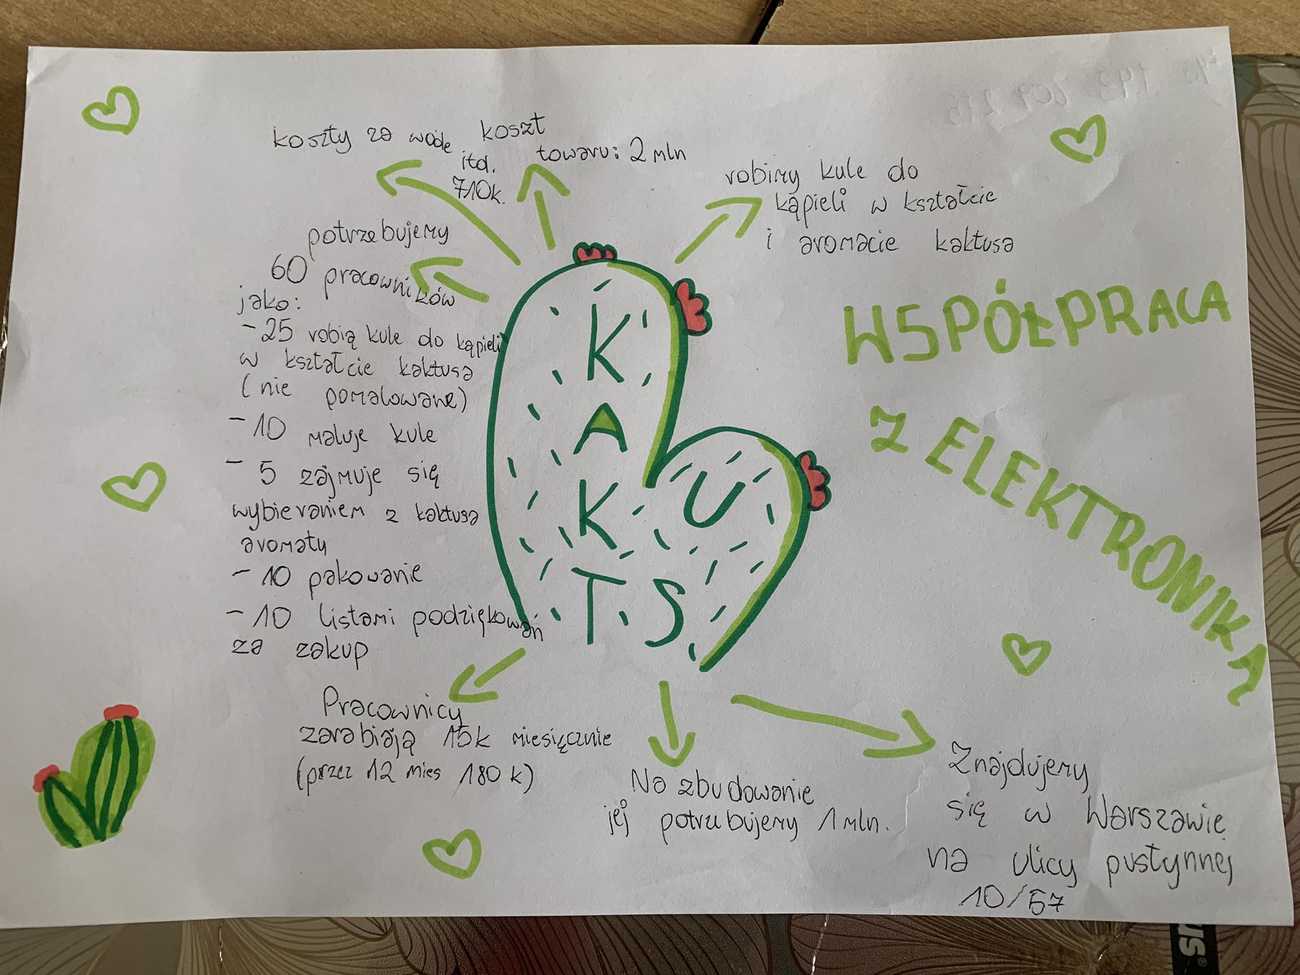 koszty za wodę
itd.
710k.
koszt
towaru: 2 mln
robimy kule do
kąpieli w kształcie
i aromacie kaktusa
potrzebujemy
60 pracowników
jako:
- 25 robią kule do kąpieli
w kształcie kaktusa
(nie pomalowane)
- 10 maluje kule
- 5 zajmuje się
wybieraniem z kaktusa
aromaty
- 10 pakowanie
- 10 listami podziękowań
za zakup
K
A
K U
T S
WSPÓŁPRACA
Z ELEKTRONIKĄ
Pracownicy
zarabiają 15k miesięcznie
(przez 12 mies 180 k)
Na zbudowanie
jej potrzubujemy 1 mln.
Znajdujemy
się w Warszawie
na ulicy pustynnej
10/57